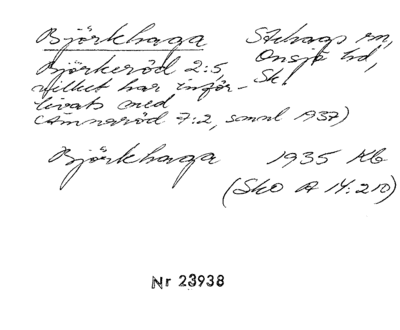 Björkhaga Stehags sn,
Björkeröd 2:5, Onsjö hd,
vilket har inför- Sk.
livats med
(Amnaröd 7:2, samml 1937)
Björkhaga 1935 Kb
(Sko A 14:210)
Nr 23938